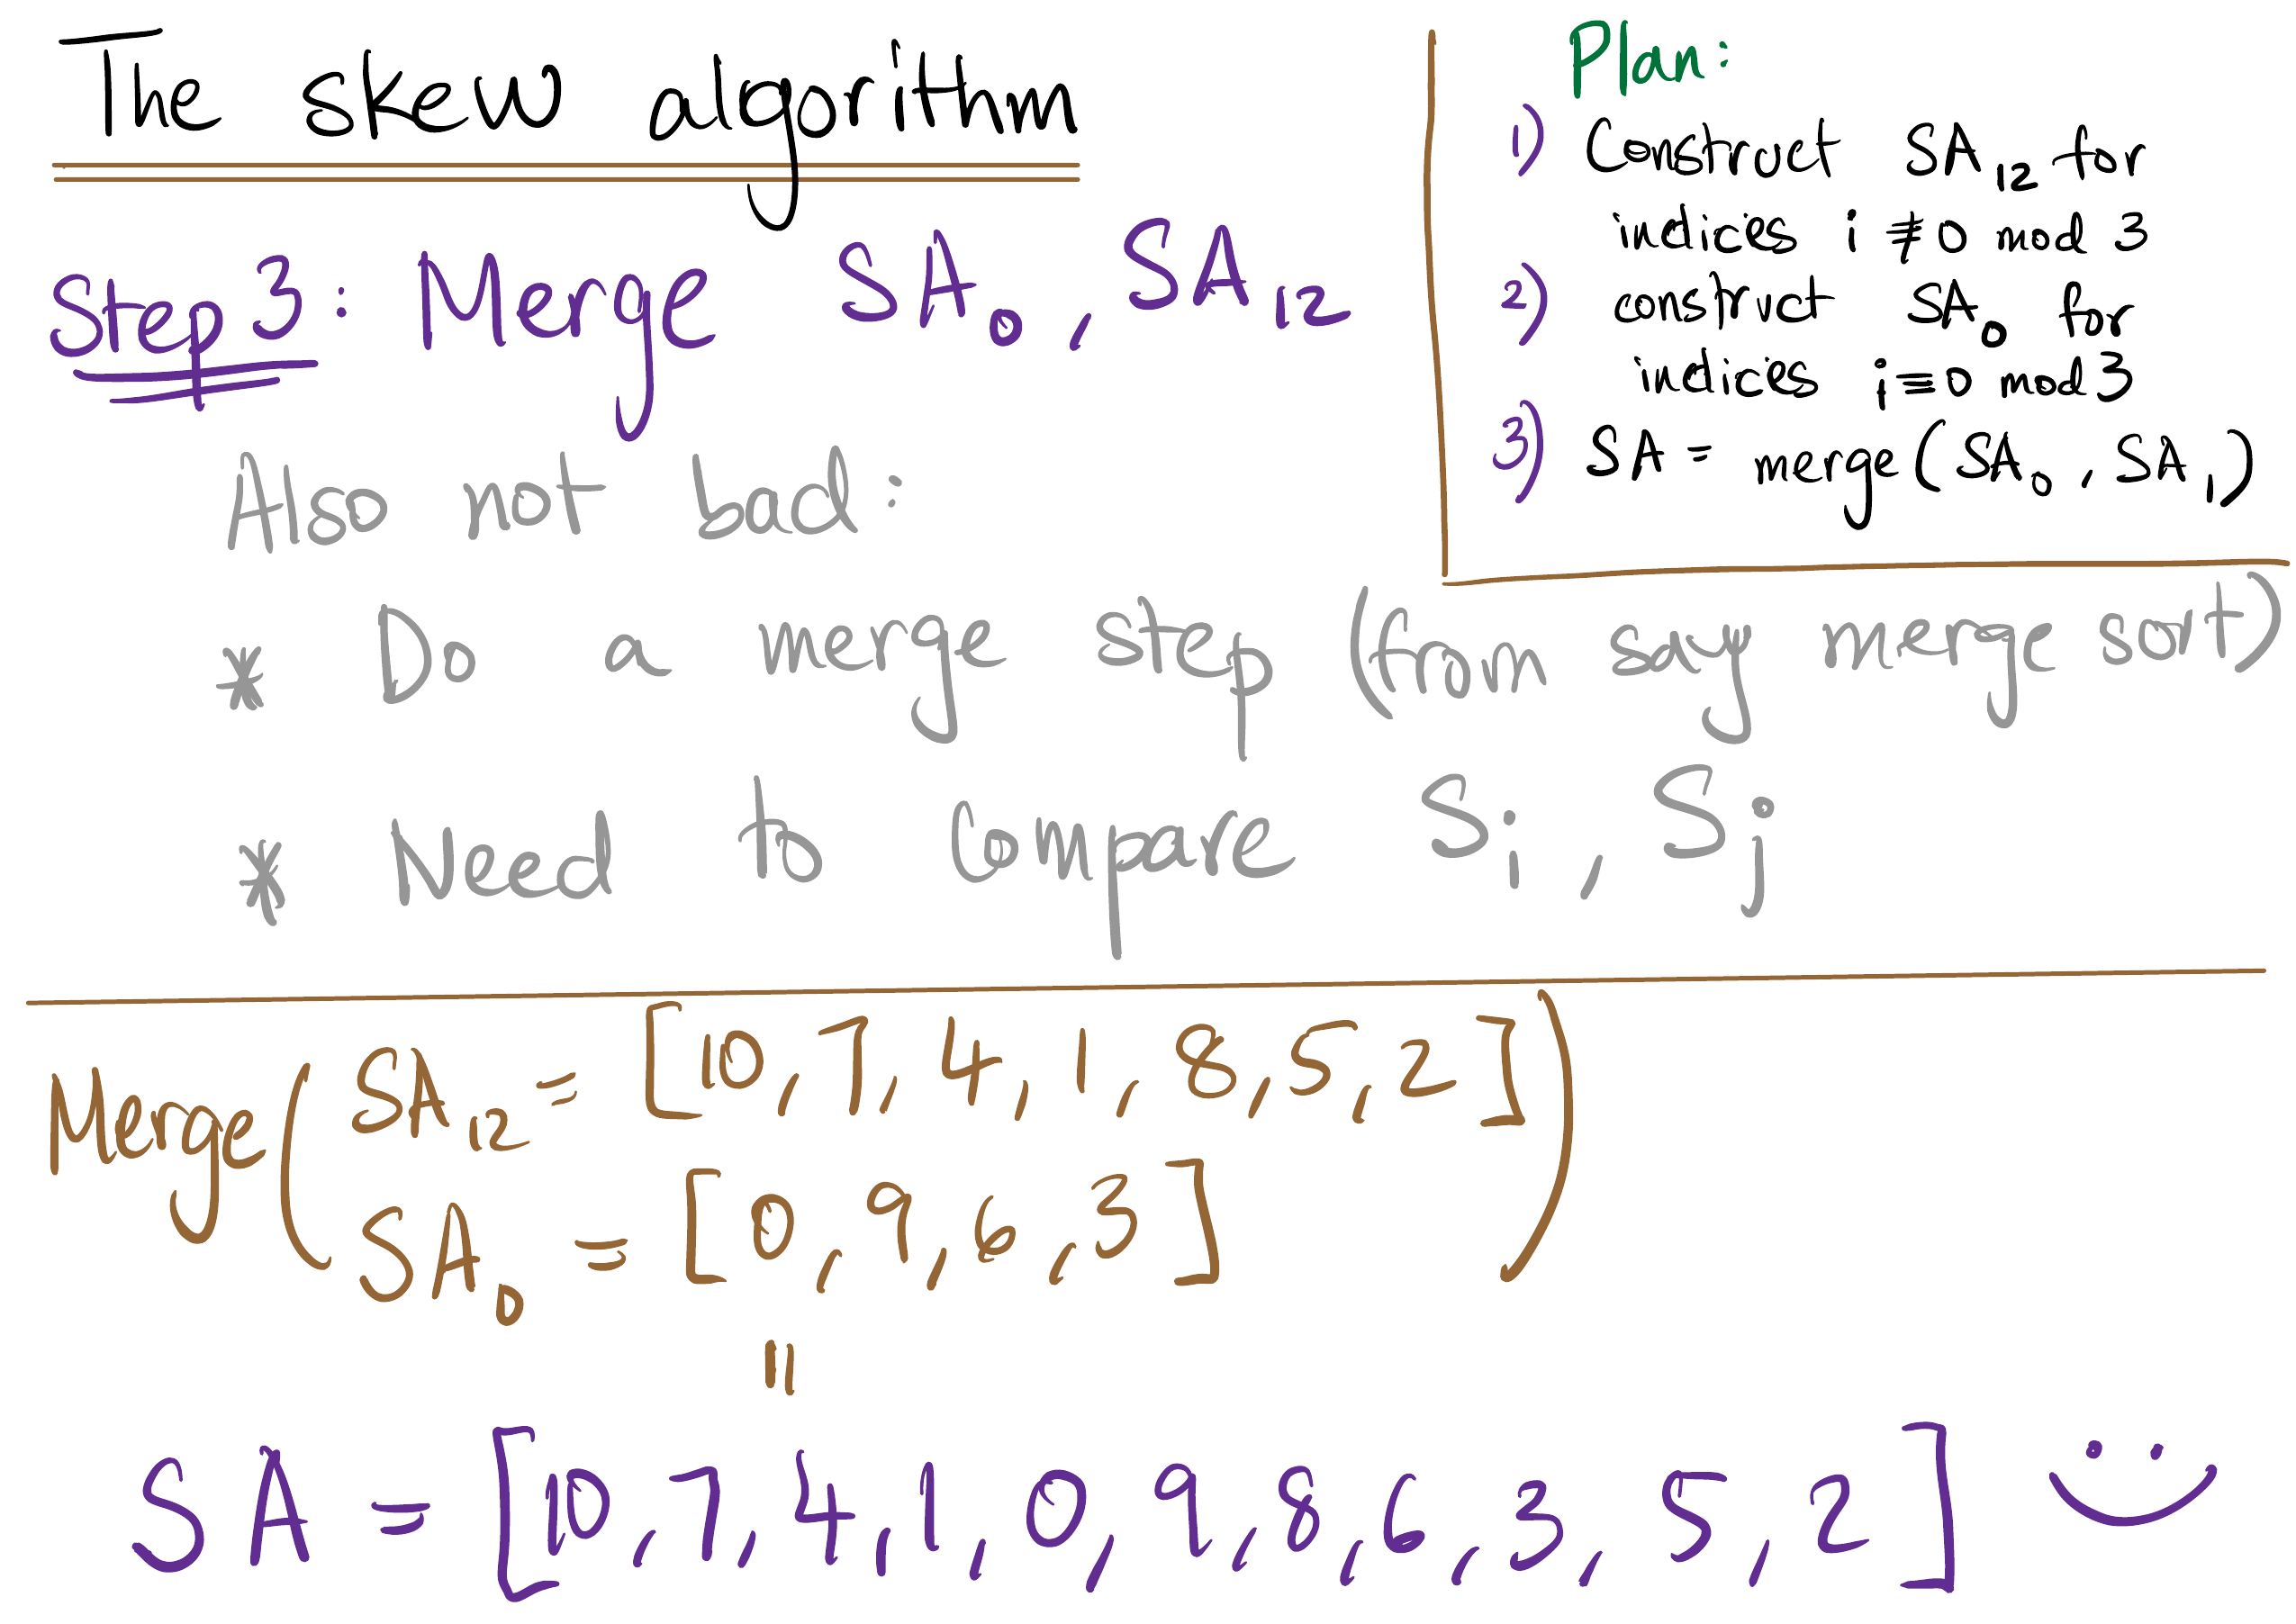 The skew algorithm
Step 3: Merge SA₀, SA₁₂
Plan:
1) Construct SA₁₂ for
indices i ≢ 0 mod 3
2) construct SA₀ for
indices i ≡ 0 mod 3
3) SA = merge(SA₀, SA₁)
Also not bad:
* Do a merge step (from say merge sort)
* Need to compare Sᵢ, Sⱼ
Merge( SA₁₂ = [10, 7, 4, 1, 8, 5, 2]
SA₀ = [0, 9, 6, 3] )
=
SA = [10, 7, 4, 1, 0, 9, 8, 6, 3, 5, 2]